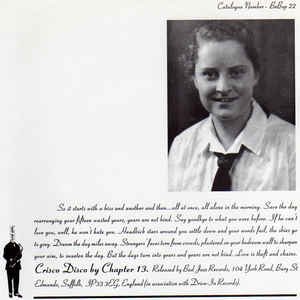 Catalogue Number - BeBop 22
So it starts with a kiss and another and then...all at once, all alone in the morning. Save the day
rearranging your fifteen wasted years, years are not kind. Say goodbye to what you were before. If he can't
love you, well, he won't hate you. Headlock stars around you settle down and your words fail, the skies go
to grey. Dream the day miles away. Strangers' faces torn from crowds, plastered on your bedroom wall to sharpen
your aim, to invalue the day. But the days turn into years and years are not kind. Love is theft and chains.
Crisco Disco by Chapter 13. Released by Bad Jazz Records, 104 York Road, Bury St
Edmunds, Suffolk, IP33 3EG, England (in association with Drive-In Records).